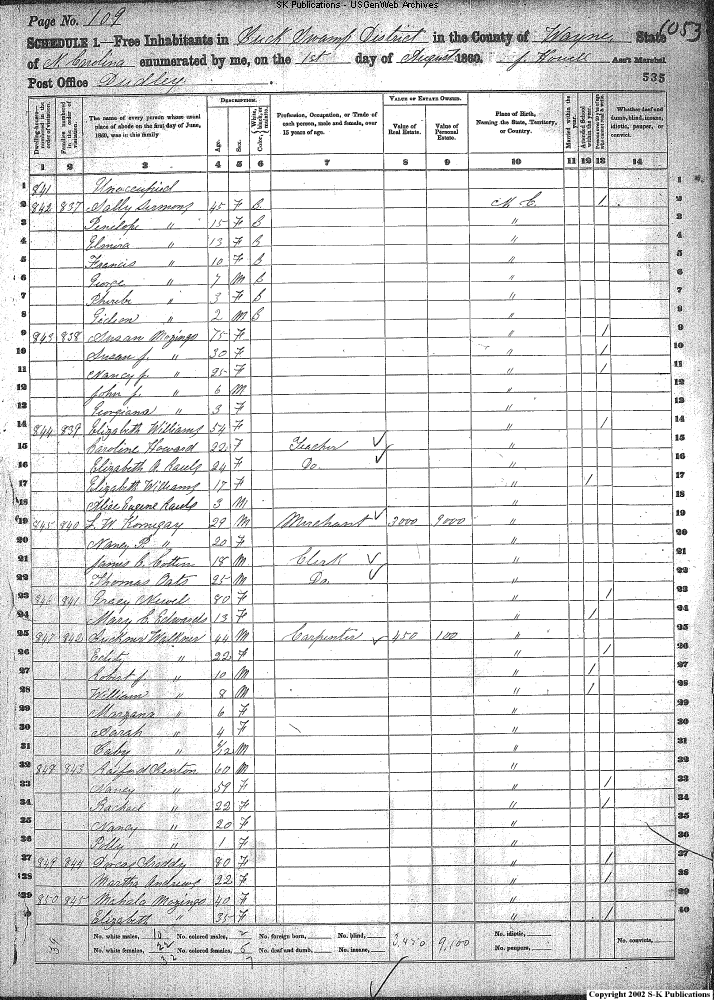 SK Publications - USGenWeb Archives
Page No. 109
1053
SCHEDULE 1.—Free Inhabitants in Buck Swamp District in the County of Wayne State
of N. Carolina enumerated by me, on the 1st day of August 1860. J. Howell Ass't Marshal
Post Office Dudley.
535
Dwelling-houses— numbered in the order of visitation.
Families numbered in the order of visitation.
The name of every person whose usual place of abode on the first day of June, 1860, was in this family
DESCRIPTION.
Age.
Sex.
Color, White, black, or mulatto.
Profession, Occupation, or Trade of each person, male and female, over 15 years of age.
VALUE OF ESTATE OWNED.
Value of Real Estate.
Value of Personal Estate.
Place of Birth, Naming the State, Territory, or Country.
Married within the year.
Attended School within the year.
Whether deaf and dumb, blind, insane, idiotic, pauper, or convict.
1 2 3 4 5 6 7 8 9 10 11 12 13 14
1 841 Unoccupied 1
2 842 837 Sally Simmons 45 F B N C / 2
3 Penelope " 15 F B " 3
4 Elmira " 13 F B " 4
5 Francis " 10 F B " 5
6 George " 7 M B " 6
7 Pheribe " 3 F B " 7
8 Gideon " 2 M B " 8
9 843 838 Susan Mozingo 75 F " / 9
10 Susan J. " 30 F " / 10
11 Nancy P. " 25 F " / 11
12 John J. " 6 M " 12
13 Georgiana " 3 F " 13
14 844 839 Elizabeth Williams 54 F " / 14
15 Caroline Howard 22 F Teacher " 15
16 Elizabeth A. 24 F Do. " 16
17 Elizabeth Williams 17 F " / 17
18 Alice Eugene 3 M " 18
19 845 840 L. W. Kornegay 29 M Merchant 3000 9000 " 19
20 Nancy P. " 20 F " 20
21 James C. Cotten 18 M Clerk " 21
22 Thomas Oats 25 M Do. " 22
23 846 841 Gracy Newel 80 F " / 23
24 Mary C. Edwards 13 F " / 24
25 847 842 44 M Carpenter 450 100 " 25
26 " 22 F " / 26
27 Robert J. " 10 M " / 27
28 William " 8 M " / 28
29 " 6 F " 29
30 Sarah " 4 F " 30
31 Baby " M " 31
32 848 843 Raiford Denton 60 M " 32
33 Nancy " 59 F " / 33
34 Rachael " 22 F " / 34
35 Nancy " 20 F " 35
36 Polly " 1 F " 36
37 849 844 Dorcas Gaddy 80 F " / 37
38 Martha Andrews 22 F " / 38
39 850 845 Mahala Mozingo 40 F " / 39
40 Elizabeth " 35 F " / 40
No. white males, 10 No. colored males, 2 No. foreign born, No. blind, 3,450 9,100 No. idiotic, No. convicts,
No. white females, 22 No. colored females, No. deaf and dumb, No. insane, No. paupers,
Copyright 2002 S-K Publications